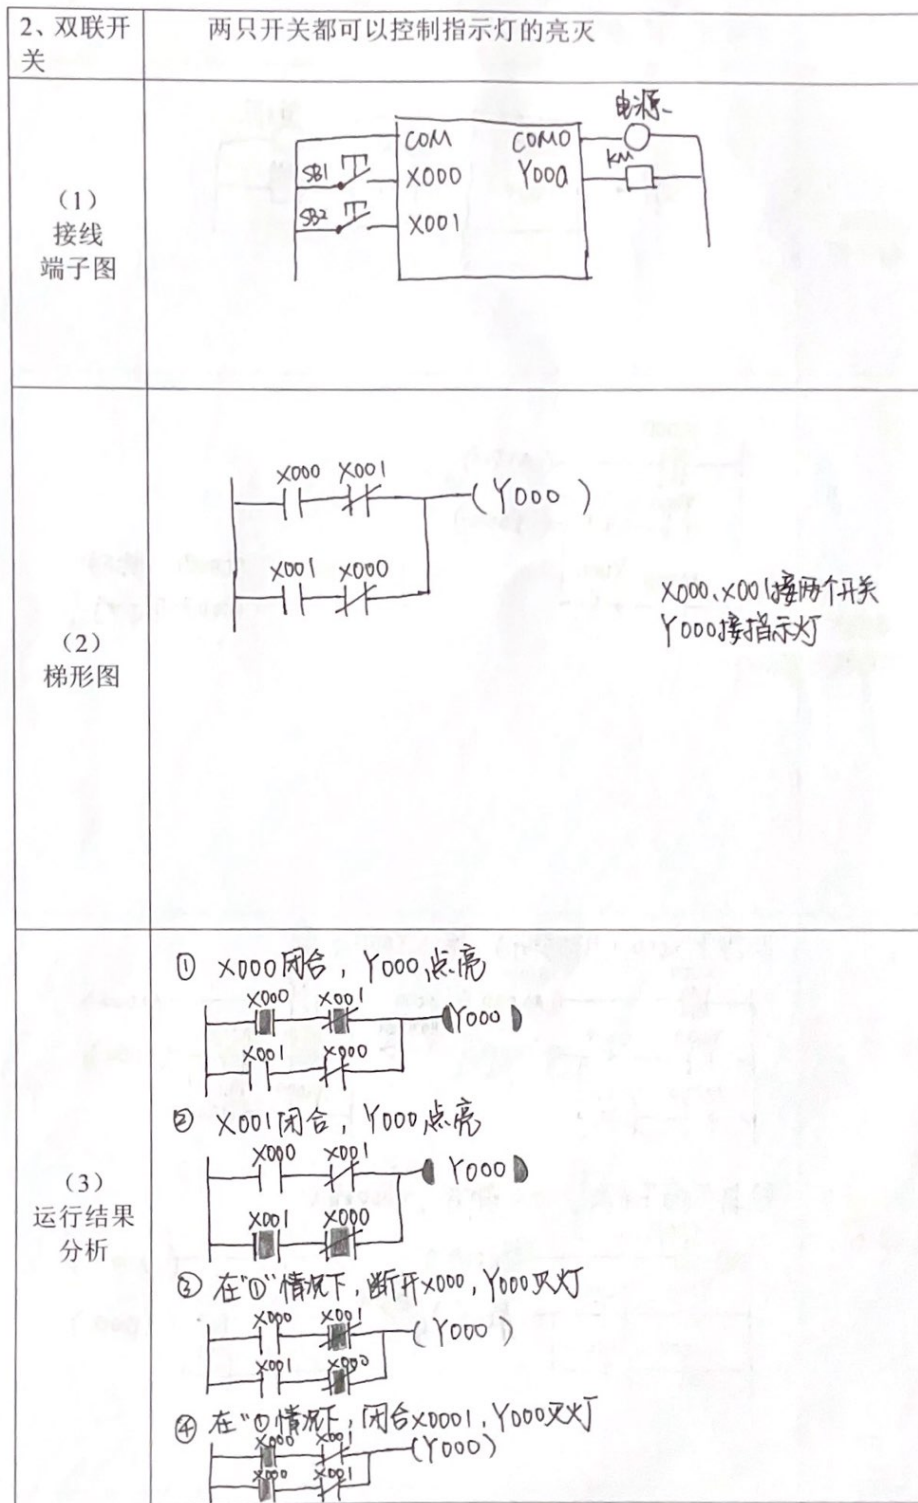 2、双联开关
两只开关都可以控制指示灯的亮灭
(1)
接线
端子图
电源
COM COM0
KM
SB1 X000 Y000
SB2 X001
(2)
梯形图
X000 X001
(Y000)
X001 X000
X000、X001接两个开关
Y000接指示灯
(3)
运行结果
分析
① X000闭合，Y000点亮
X000 X001
(Y000)
X001 X000
② X001闭合，Y000点亮
X000 X001
(Y000)
X001 X000
③ 在"①"情况下，断开X000，Y000灭灯
X000 X001
(Y000)
X001 X000
④ 在"①情况下，闭合X0001，Y000灭灯
X000 X001
(Y000)
X000 X001